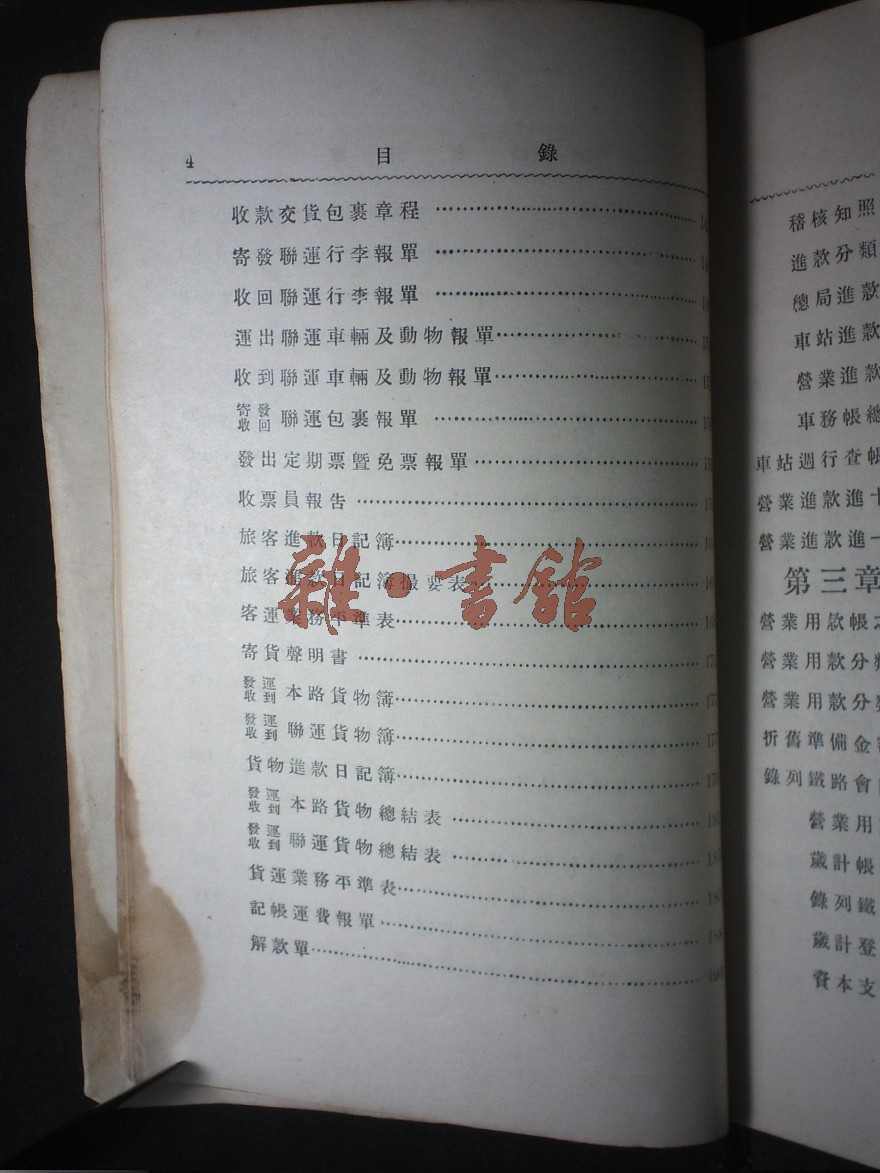 4 目錄
收款交貨包裹章程
寄發聯運行李報單
收回聯運行李報單
運出聯運車輛及動物報單
收到聯運車輛及動物報單
寄發收回聯運包裹報單
發出定期票暨免票報單
收票員報告
旅客進款日記簿
旅客進款日記簿撮要表
客運業務平準表
寄貨聲明書
發運收到本路貨物簿
發運收到聯運貨物簿
貨物進款日記簿
發運收到本路貨物總結表
發運收到聯運貨物總結表
貨運業務平準表
記帳運費報單
解款單
雜·書館
稽核知照
進款分類
總局進款
車站進款
營業進款
車務帳總
車站週行查帳
營業進款進十
營業進款進一
第三章
營業用款帳之
營業用款分類
營業用款分類
折舊準備金
錄列鐵路會
營業用
歲計帳
錄列鐵
歲計登
資本支